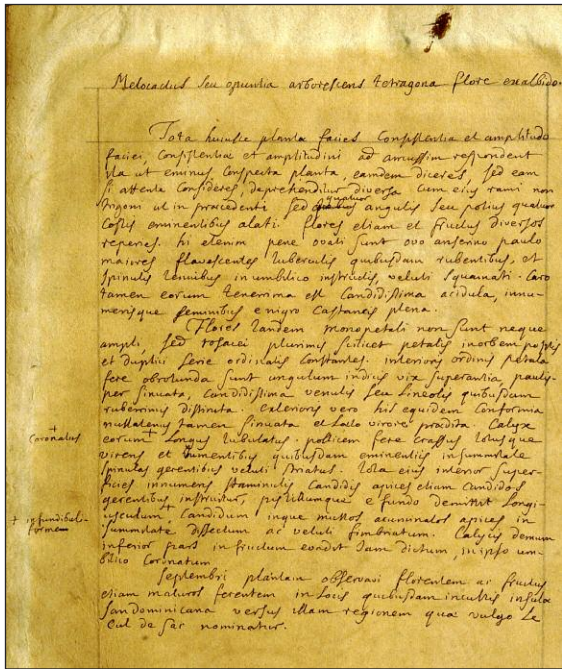 Melocactus seu opuntia arborescens tetragona flore exalbido.
Tota huiusce planta facies Consistentia et amplitudo
faciei, Consistentiæ et amplitudini ad amussim respondent
ita ut eminus Conspecta planta, eamdem diceres, sed eam
si attente Consideres, deprehenditur diversa Cum eius rami non
trigoni ut in præcedenti sed quatuor angulis seu potius quatuor
Costis eminentibus alati. flores etiam et fructus diversos
reperies. hi etenim pene ovati sunt ovo anserino paulo
maiores flavescentes tuberculis quibusdam rubentibus, et
spinulis tenuibus in umbilico instructis, veluti squamati. Caro
tamen eorum tenerrima est Candidissima acidula, innu-
merisque seminibus e nigro Castaneis plena.
Flores tandem monopetali non sunt neque
ampli, sed rosacei plurimis scilicet petalis in orbem positis
et duplici serie ordinatis Constantes. interioris ordinis petala
fere obrotunda sunt ungulum indicis vix superantia, paulis-
per sinuata, Candidissima venulis seu Lineolis quibusdam
ruberrimis distincta. exterioris vero his equidem Conformia
nullatenus tamen sinuata et Luteo virore prædita. Calyx
eorum + Longus tubulatus. pollicem fere Crassus totusque
virens et tumentibus quibusdam eminentiis in summitate
spinulas gerentibus veluti striatus. tota eius interior super-
ficies innumeris staminulis Candidis apices etiam Candidos
gerentibus instruitur, pistillumque e fundo demittit Longi-
usculum + Candidum inque multos acuminatos apices in
summitate dissectum ac veluti fimbriatum. Calycis demum
inferior pars in fructum evadit iam dictum, in ipso um-
bilico Coronatum
Septembri plantam observavi florentem ac fructus
etiam maturos ferentem in Locis quibusdam incultis insulæ
San Dominicanæ versus illam regionem quæ vulgo Le
Cul de sac nominatur.
+
Coronatus
+ infundibuli-
forme